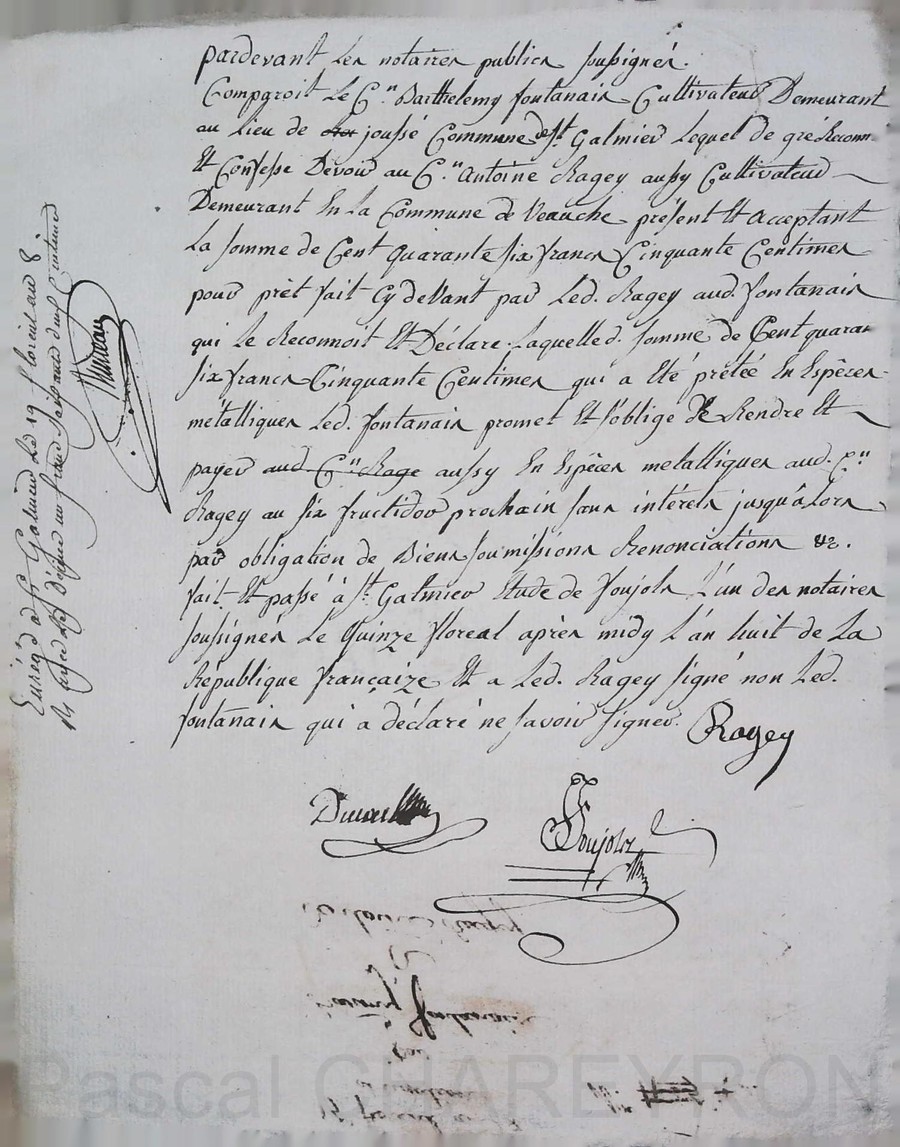 pardevant Les notaires publics soussignés.
Comparoit Le C.en Barthelemy fontanais Cultivateur Demeurant
au Lieu de joussé Commune de St. Galmier Lequel de gré Reconn
Et Confesse Devoir au C.en Antoine Ragey aussy Cultivateur
Demeurant En La Commune de Veauche présent Et acceptant
La somme de Cent quarante six francs Cinquante Centimes
pour prêt fait Cy devant par Led. Ragey aud. fontanais
qui Le Reconnoit Et Déclare. Laquelle d. somme de Cent quaran
six francs Cinquante Centimes qui a Eté prêtée En Espèces
métalliques Led. fontanais promet Et s'oblige de Rendre Et
payer aud. C.en Rage aussy En Espèces métalliques aud. C.en
Ragey au six fructidor prochain sans intérêts jusqu'à Lors
par obligation de Biens soumissions Renonciations &a.
fait Et passé à St. Galmier Etude de foujols L'un des notaires
soussignés Le Quinze floreal après midy L'an huit de La
République françaize Et a Led. Ragey signé non Led.
fontanais qui a déclaré ne savoir signer.
Ragey
foujols
Enrég.é à St. Galmier Le 19 floréal an 8
Pascal CHAREYRON